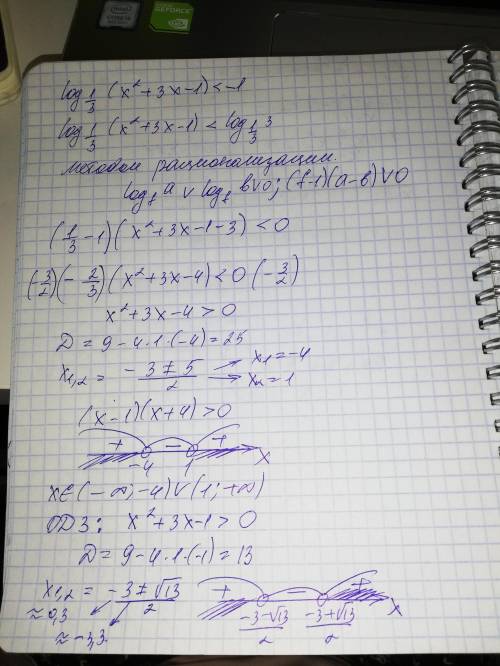 intel
CORE i5
GEFORCE
log_{1/3} (x² + 3x - 1) < -1
log_{1/3} (x² + 3x - 1) < log_{1/3} 3
методом рационализации.
log_f a ∨ log_f b ∨ 0; (f-1)(a-b) ∨ 0
(1/3 - 1)(x² + 3x - 1 - 3) < 0
(-3/2)(-2/3)(x² + 3x - 4) < 0 (-3/2)
x² + 3x - 4 > 0
D = 9 - 4·1·(-4) = 25
x₁,₂ = (-3 ∓ 5)/2 → x₁ = -4
→ x₂ = 1
(x-1)(x+4) > 0
+ - +
-4 1 x
x∈(-∞; -4)∨(1; +∞)
ОДЗ: x² + 3x - 1 > 0
D = 9 - 4·1·(-1) = 13
x₁,₂ = (-3 ∓ √13)/2
+ - +
(-3-√13)/2 (-3+√13)/2 x
≈ 0,3
≈ -3,3